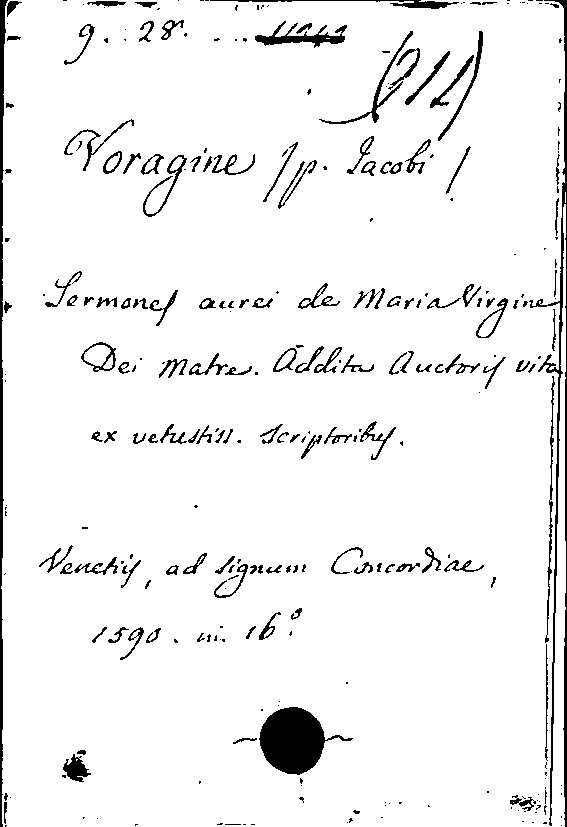 9. 28.
(212)
Voragine /p. Jacobi /
Sermones aurei de Maria Virgine
Dei Matre. Addita Auctoris vita
ex vetustiss. scriptoribus.
Venetiis, ad signum Concordiae,
1590. in 16º.